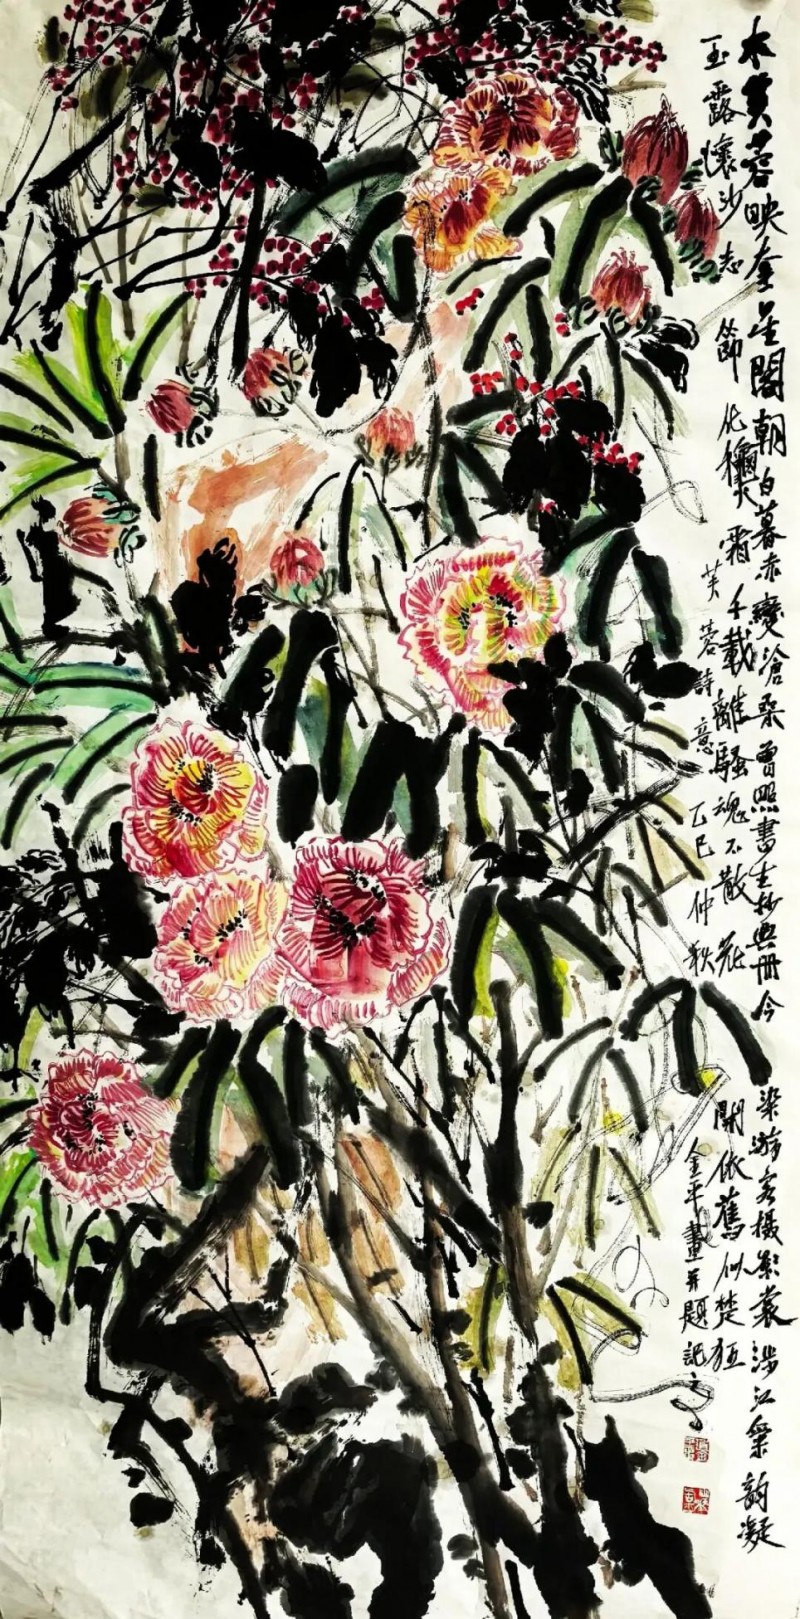 木芙蓉映奎星閣朝白暮赤變滄桑曾照書生抄典冊今染游客攝影裳涉江氣韻凝
玉露懷沙志節化穠霜千載離騷魂不散花開依舊似楚狂
芙蓉詩意 乙巳仲秋 金平畫并題記之